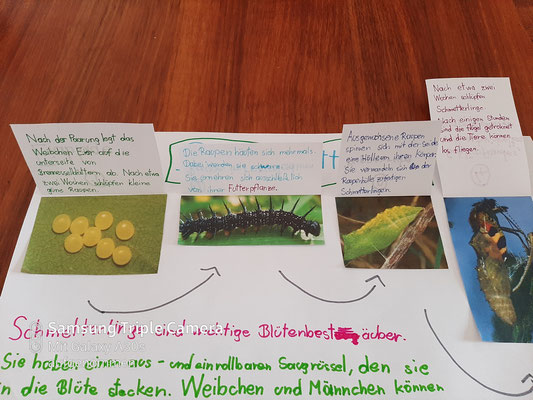 Nach der Paarung legt das
Weibchen Eier auf die
unterseite von
Brennesselblättern ab. Nach etwa
zwei Wochen schlüpfen kleine
grüne Raupen.
Die Raupen häuten sich mehrmals.
Dabei werden sie
Sie ernähren sich ausschließlich
von ihrer Futterpflanze.
Ausgewachsene Raupen
spinnen sich mit der Seide
eine Hülle um ihren Körper.
Sie verwandeln sich in der
Raupenhülle zu fertigen
Schmetterlingen.
Nach etwa zwei
Wochen schlüpfen
Schmetterlinge.
Nach einigen Stunden
sind die Flügel getrocknet
und die Tiere können
los fliegen.
Schmetterlinge sind wichtige Blütenbestäuber.
Sie haben einen aus- und einrollbaren Saugrüssel, den sie
in die Blüte stecken. Weibchen und Männchen können
Samsung Triple Camera